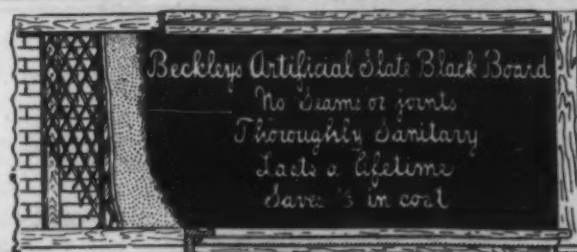 Beckleys Artificial Slate Black Board
No Seams or joints
Thoroughly Sanitary
Lasts a lifetime
Saves ⅓ in cost